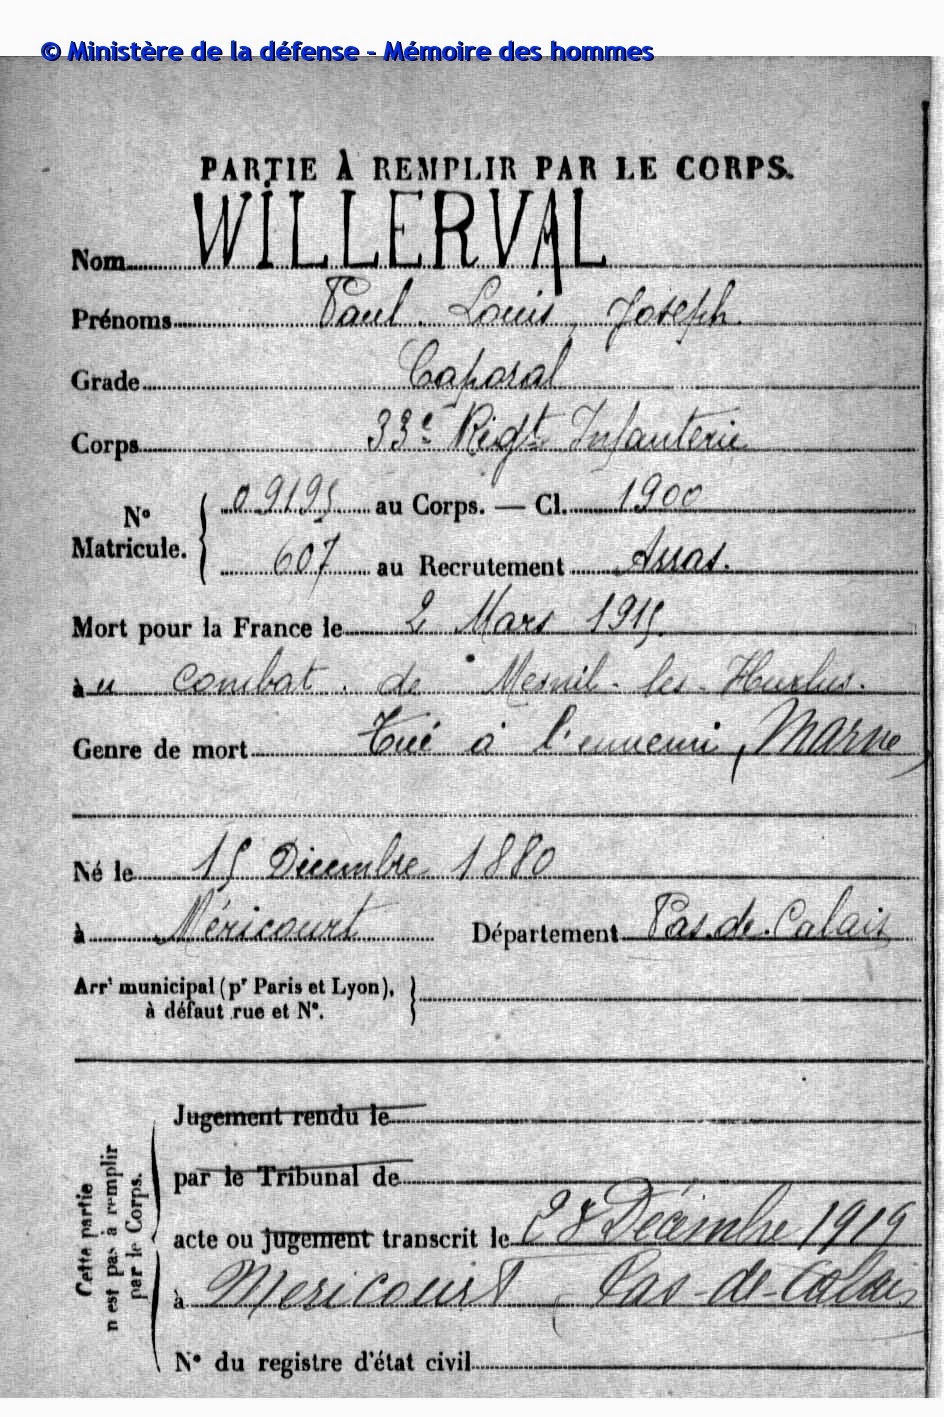 © Ministère de la défense - Mémoire des hommes
PARTIE À REMPLIR PAR LE CORPS.
Nom WILLERVAL
Prénoms Paul Louis Joseph
Grade Caporal
Corps 33e Regt Infanterie
N° Matricule. { 09195 au Corps. — Cl. 1900
607 au Recrutement Arras.
Mort pour la France le 2 Mars 1915
au combat de Mesnil-les-Hurlus.
Genre de mort Tué à l'ennemi (Marne)
Né le 15 Décembre 1880
à Méricourt Département Pas-de-Calais
Arrt municipal (pr Paris et Lyon),
à défaut rue et N°.
Cette partie
n'est pas à remplir
par le Corps.
Jugement rendu le
par le Tribunal de
acte ou jugement transcrit le 28 Décembre 1919
à Méricourt Pas-de-Calais
N° du registre d'état civil